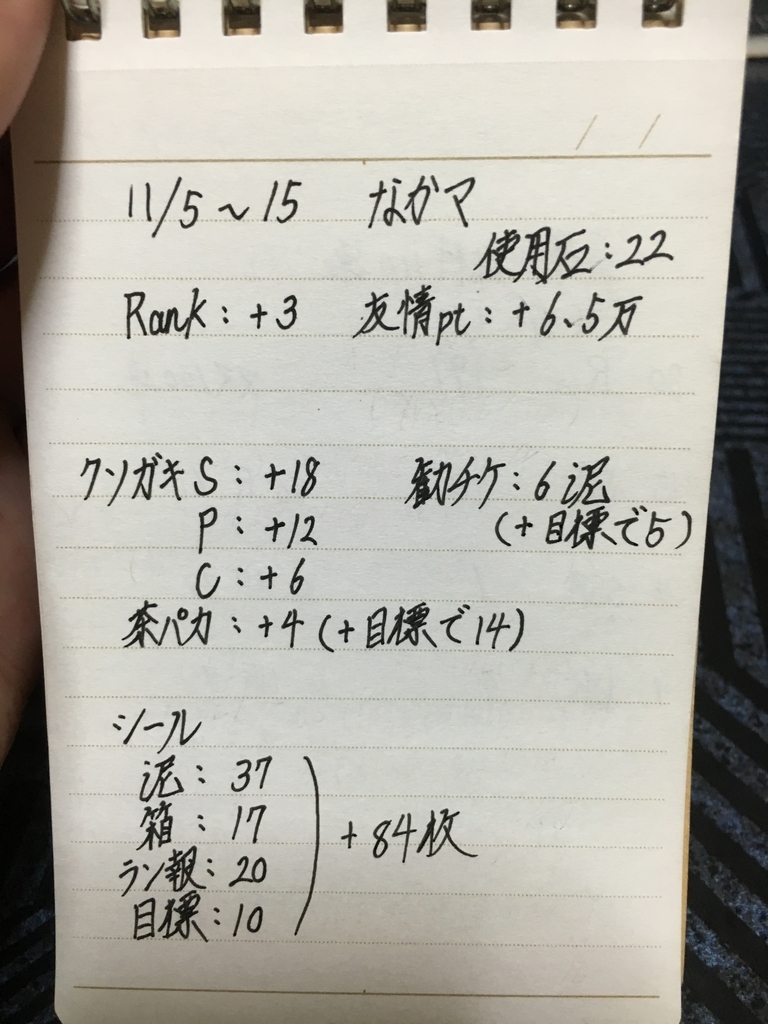 / /
11/5～15 なかマ
使用石:22
Rank:+3 友情pt:+6.5万
クソガキS:+18 勧チケ:6泥
P:+12 (+目標で5)
C:+6
茶パカ:+4(+目標で14)
シール
泥:37
箱:17
+84枚
ラン報:20
目標:10